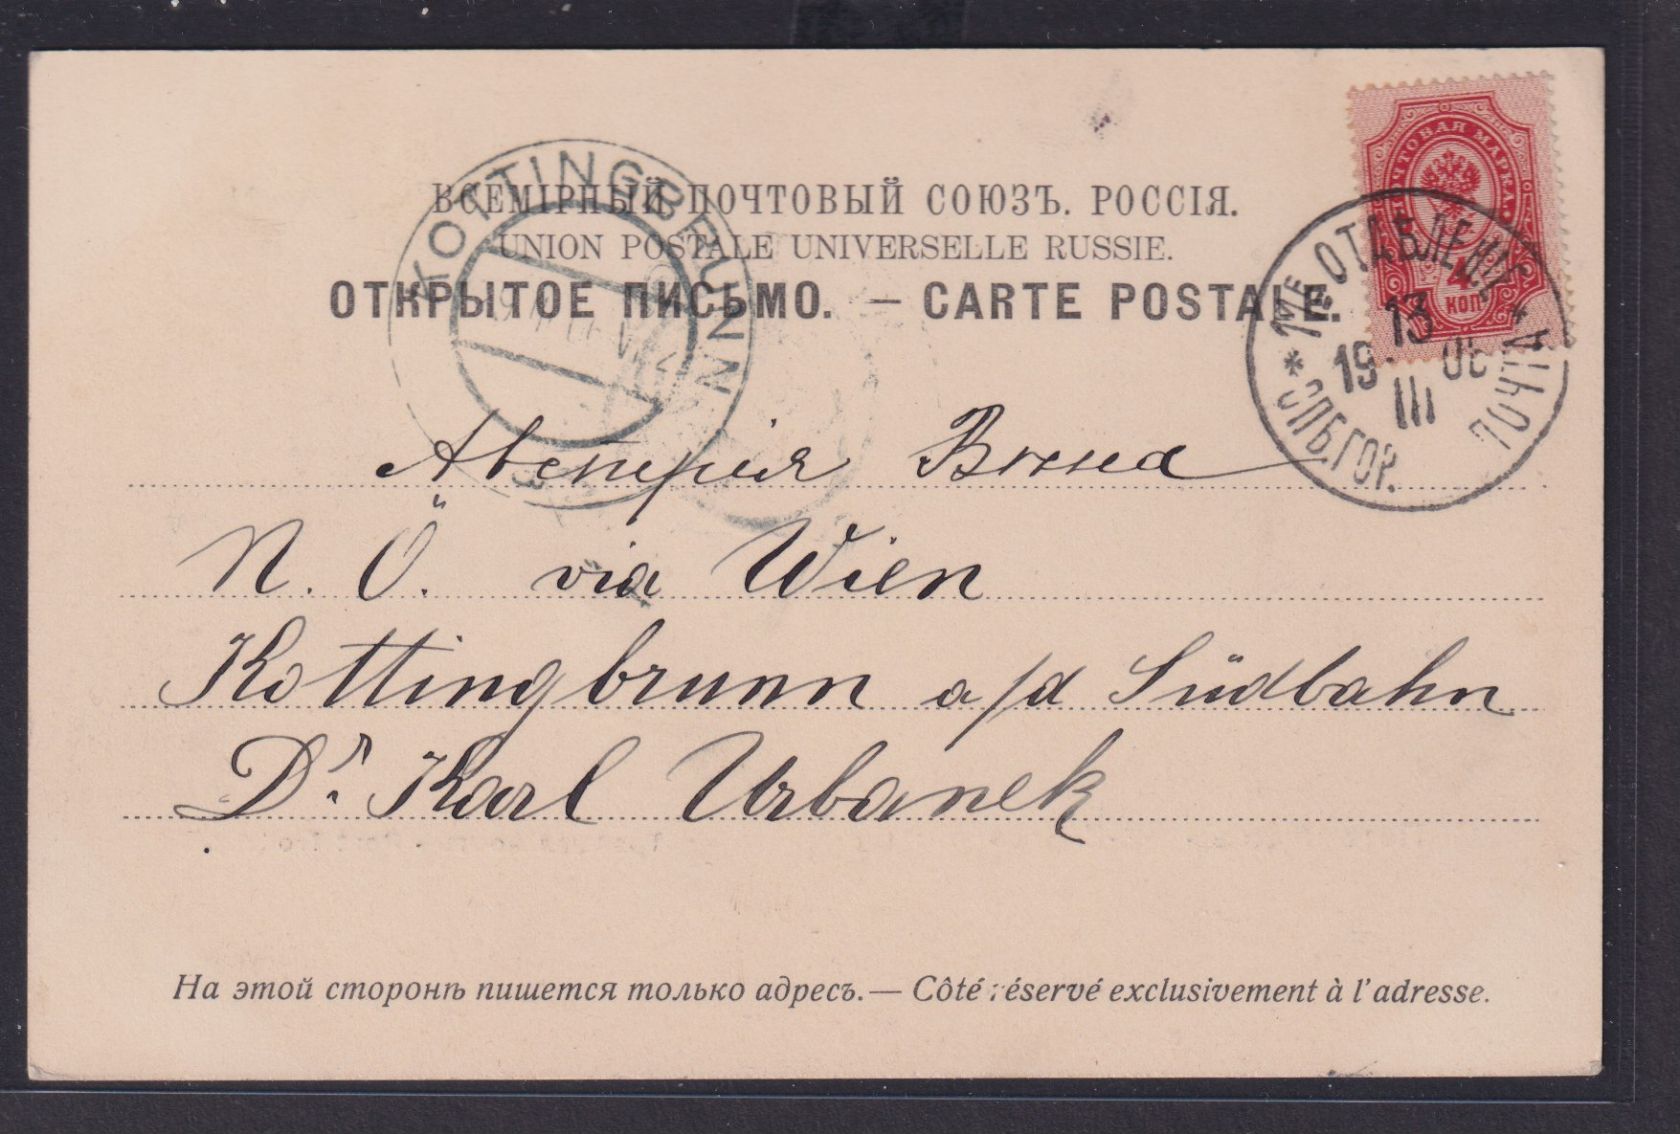 ВСЕМІРНЫЙ ПОЧТОВЫЙ СОЮЗЪ. РОССІЯ.
UNION POSTALE UNIVERSELLE RUSSIE.
ОТКРЫТОЕ ПИСЬМО. — CARTE POSTALE.
ПОЧТОВАЯ МАРКА.
4
КОП
1ГЕ ОТДѢЛЕНІЕ
* СПБ.ГОР. ПОЧТЫ *
13
19
III
KOTTINGBRUNN
Австрія Вѣна
N. Ö. via Wien
Kottingbrunn a/d Südbahn
Dr. Karl Urbanek
На этой сторонѣ пишется только адресъ.— Côté réservé exclusivement à l'adresse.